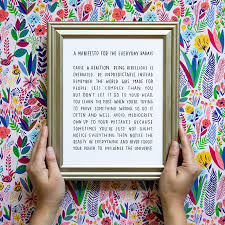 A MANIFESTO FOR THE EVERYDAY BADASS
CAUSE A REACTION. BEING REBELLIOUS IS
OVERRATED. BE UNPREDICTABLE INSTEAD.
REMEMBER THE WORLD WAS MADE FOR
PEOPLE LESS COMPLEX THAN YOU
BUT DON'T LET IT GO TO YOUR HEAD.
YOU LEARN THE MOST WHEN YOU'RE TRYING
TO PROVE SOMETHING WRONG SO DO IT
OFTEN AND WELL. AVOID MEDIOCRITY.
OWN UP TO YOUR MISTAKES BECAUSE
SOMETIMES YOU'RE JUST NOT RIGHT.
NOTICE EVERYTHING THEN NOTICE THE
BEAUTY IN EVERYTHING AND NEVER FORGET
YOUR POWER TO INFLUENCE THE UNIVERSE